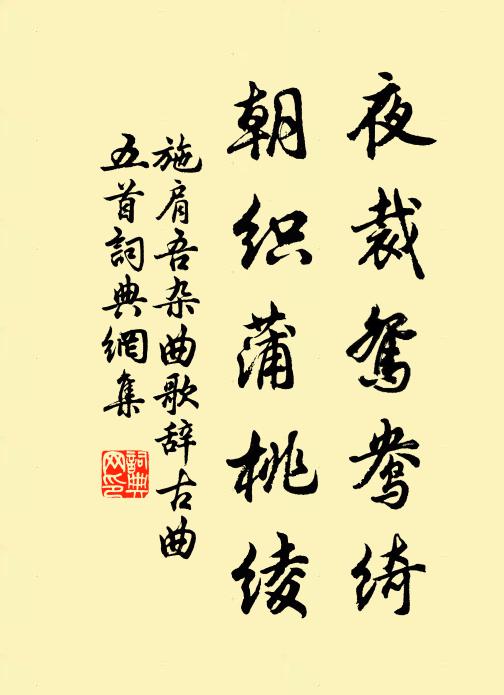 夜裁鸳鸯绮
朝织蒲桃绫
施肩吾杂曲歌辞古曲
五首詞典網集
詞典
网印